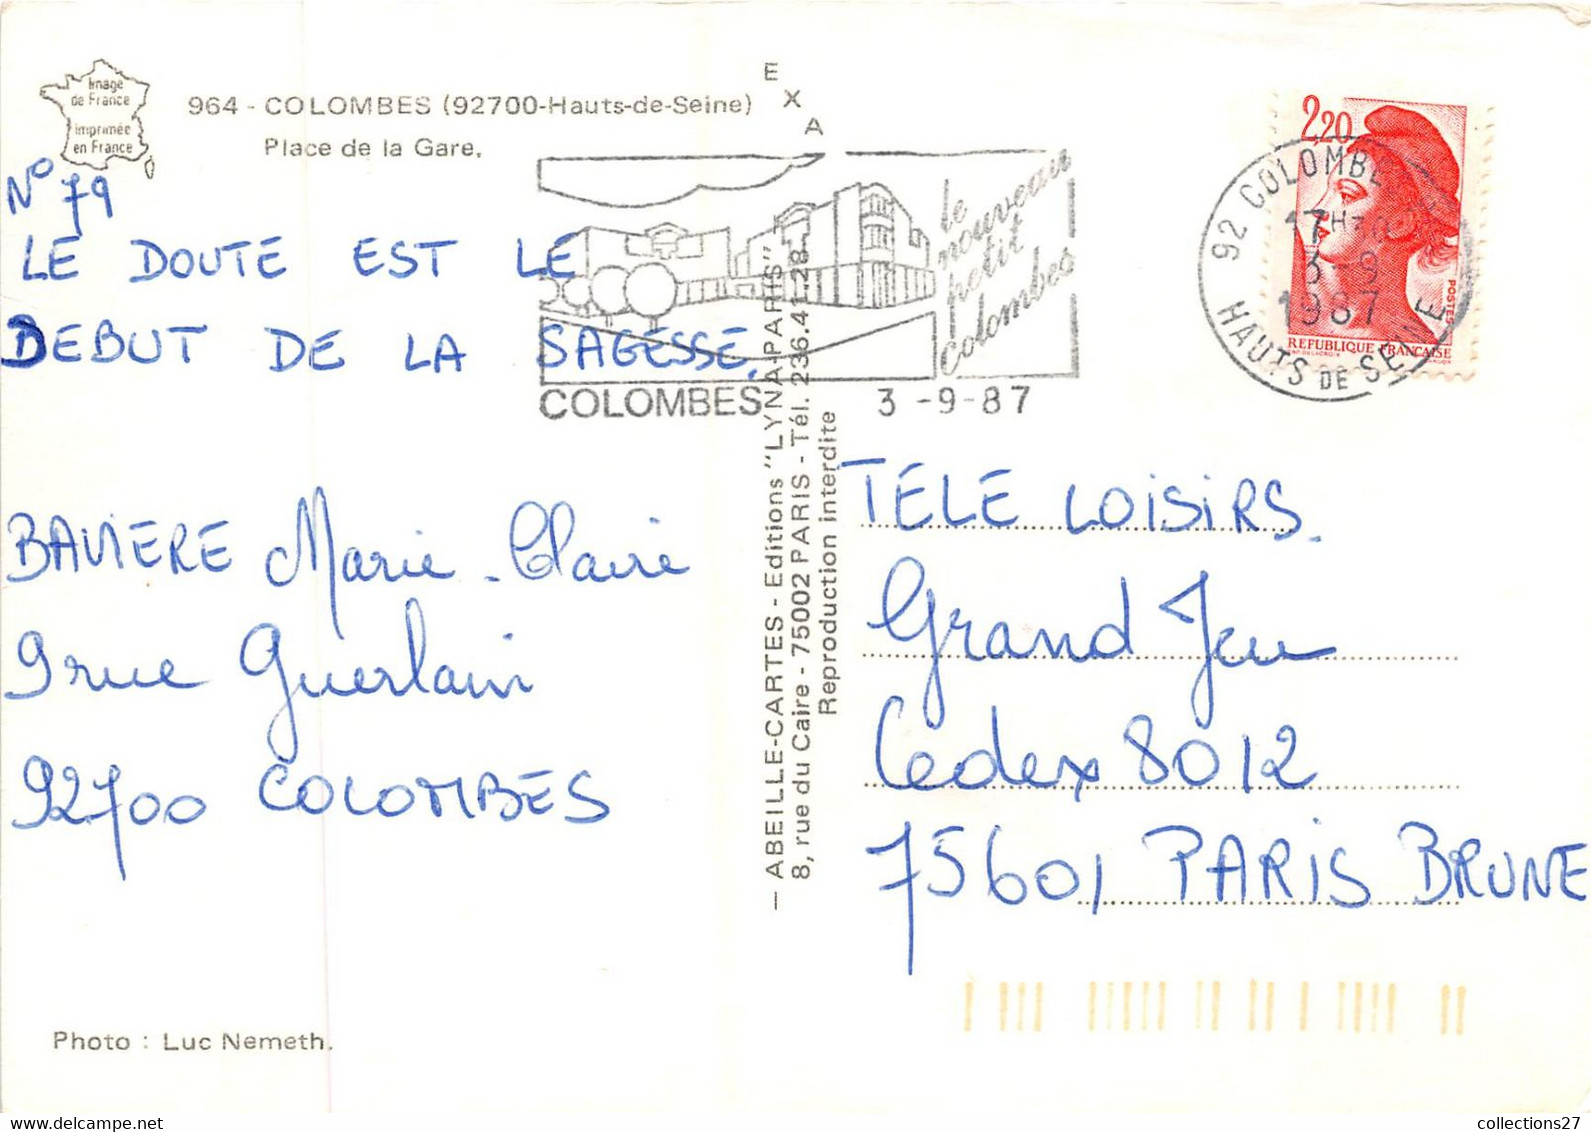 Image
de France
imprimée
en France
964 - COLOMBES (92700-Hauts-de-Seine)
Place de la Gare.
E X A
N° 79
LE DOUTE EST LE
DEBUT DE LA SAGESSE.
BAVIERE Marie-Claire
9 rue Guerlain
92700 COLOMBES
Photo : Luc Nemeth.
le
nouveau
petit
Colombes
COLOMBES 3 -9-87
— ABEILLE-CARTES - Editions "LYNA-PARIS"
8, rue du Caire - 75002 PARIS - Tél. 236.41.28
Reproduction interdite
2,20
POSTES
REPUBLIQUE FRANÇAISE
92 COLOMBE
17H30
3-9
1987
HAUTS DE SEINE
TÉLÉ LOISIRS.
Grand Jeu
Cedex 8012
75601 PARIS BRUNE
collections27